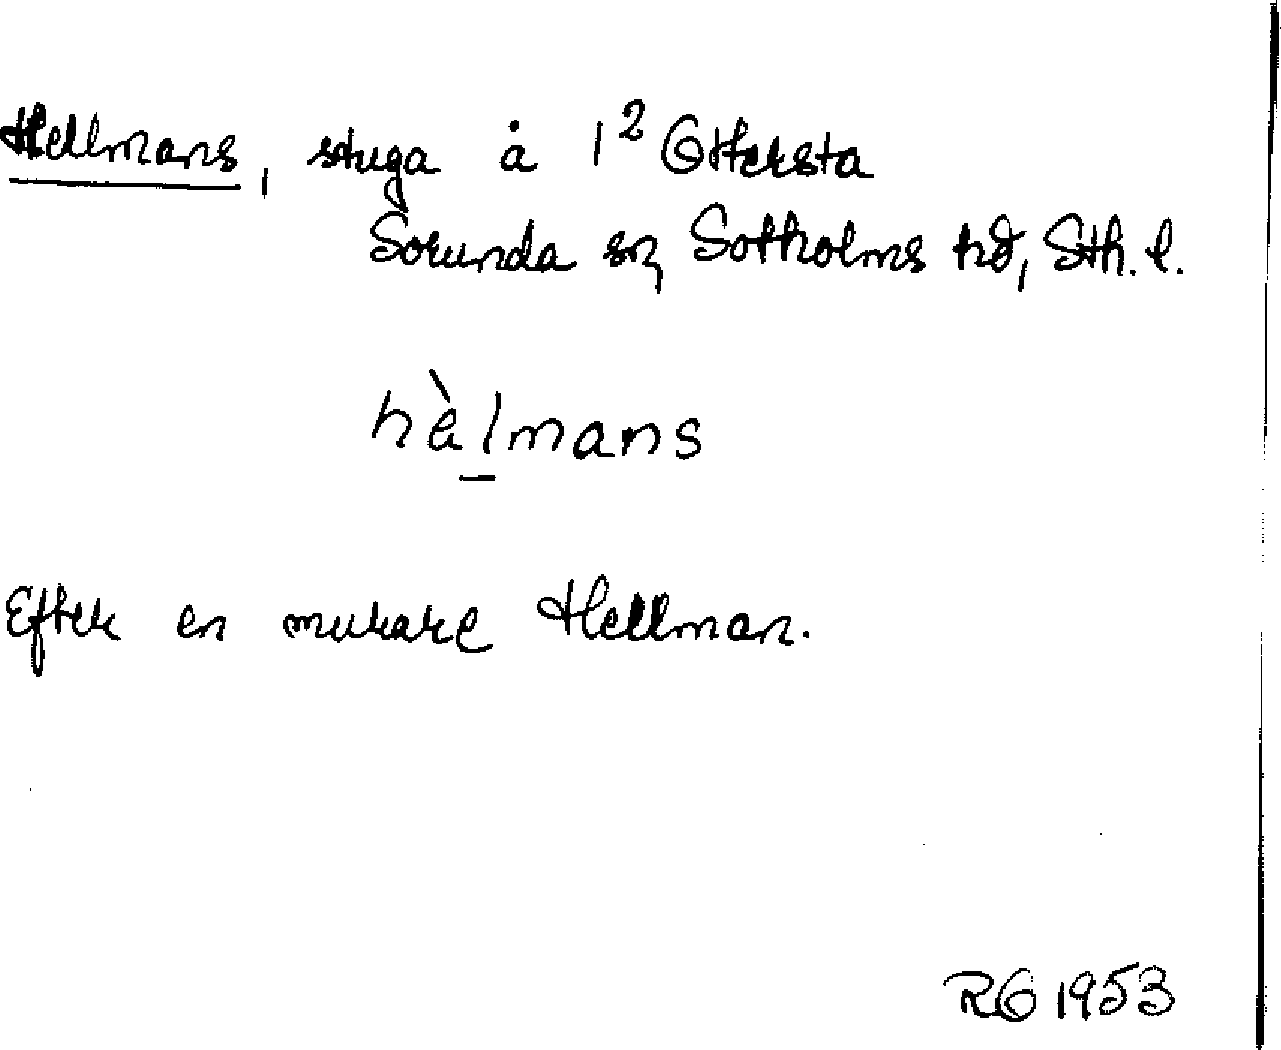 Hellmans, stuga å 1² Ottersta
Sorunda sn, Sotholms hd, Sth. l.
hèlmans
Efter en murare Hellman.
RG 1953